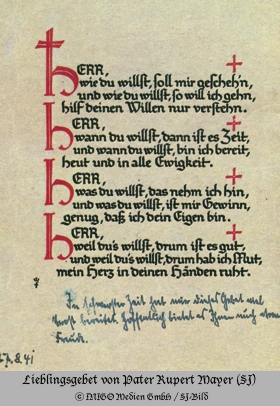 HERR,
wie du willst, soll mir gescheh'n,
und wie du willst, so will ich gehn,
hilf deinen Willen nur verstehn.
HERR,
wann du willst, dann ist es Zeit,
und wann du willst, bin ich bereit,
heut und in alle Ewigkeit.
HERR,
was du willst, das nehm ich hin,
und was du willst, ist mir Gewinn,
genug, daß ich dein Eigen bin.
HERR,
weil du's willst, drum ist es gut,
und weil du's willst, drum hab ich Mut,
mein Herz in deinen Händen ruht.
In schwerster Zeit hat mir dieses Gebet viel
Trost bereitet. Hoffentlich bietet es Ihnen auch
8.41
Lieblingsgebet von Pater Rupert Mayer (SJ)
© MUGO Medien GmbH / SJ-Bild